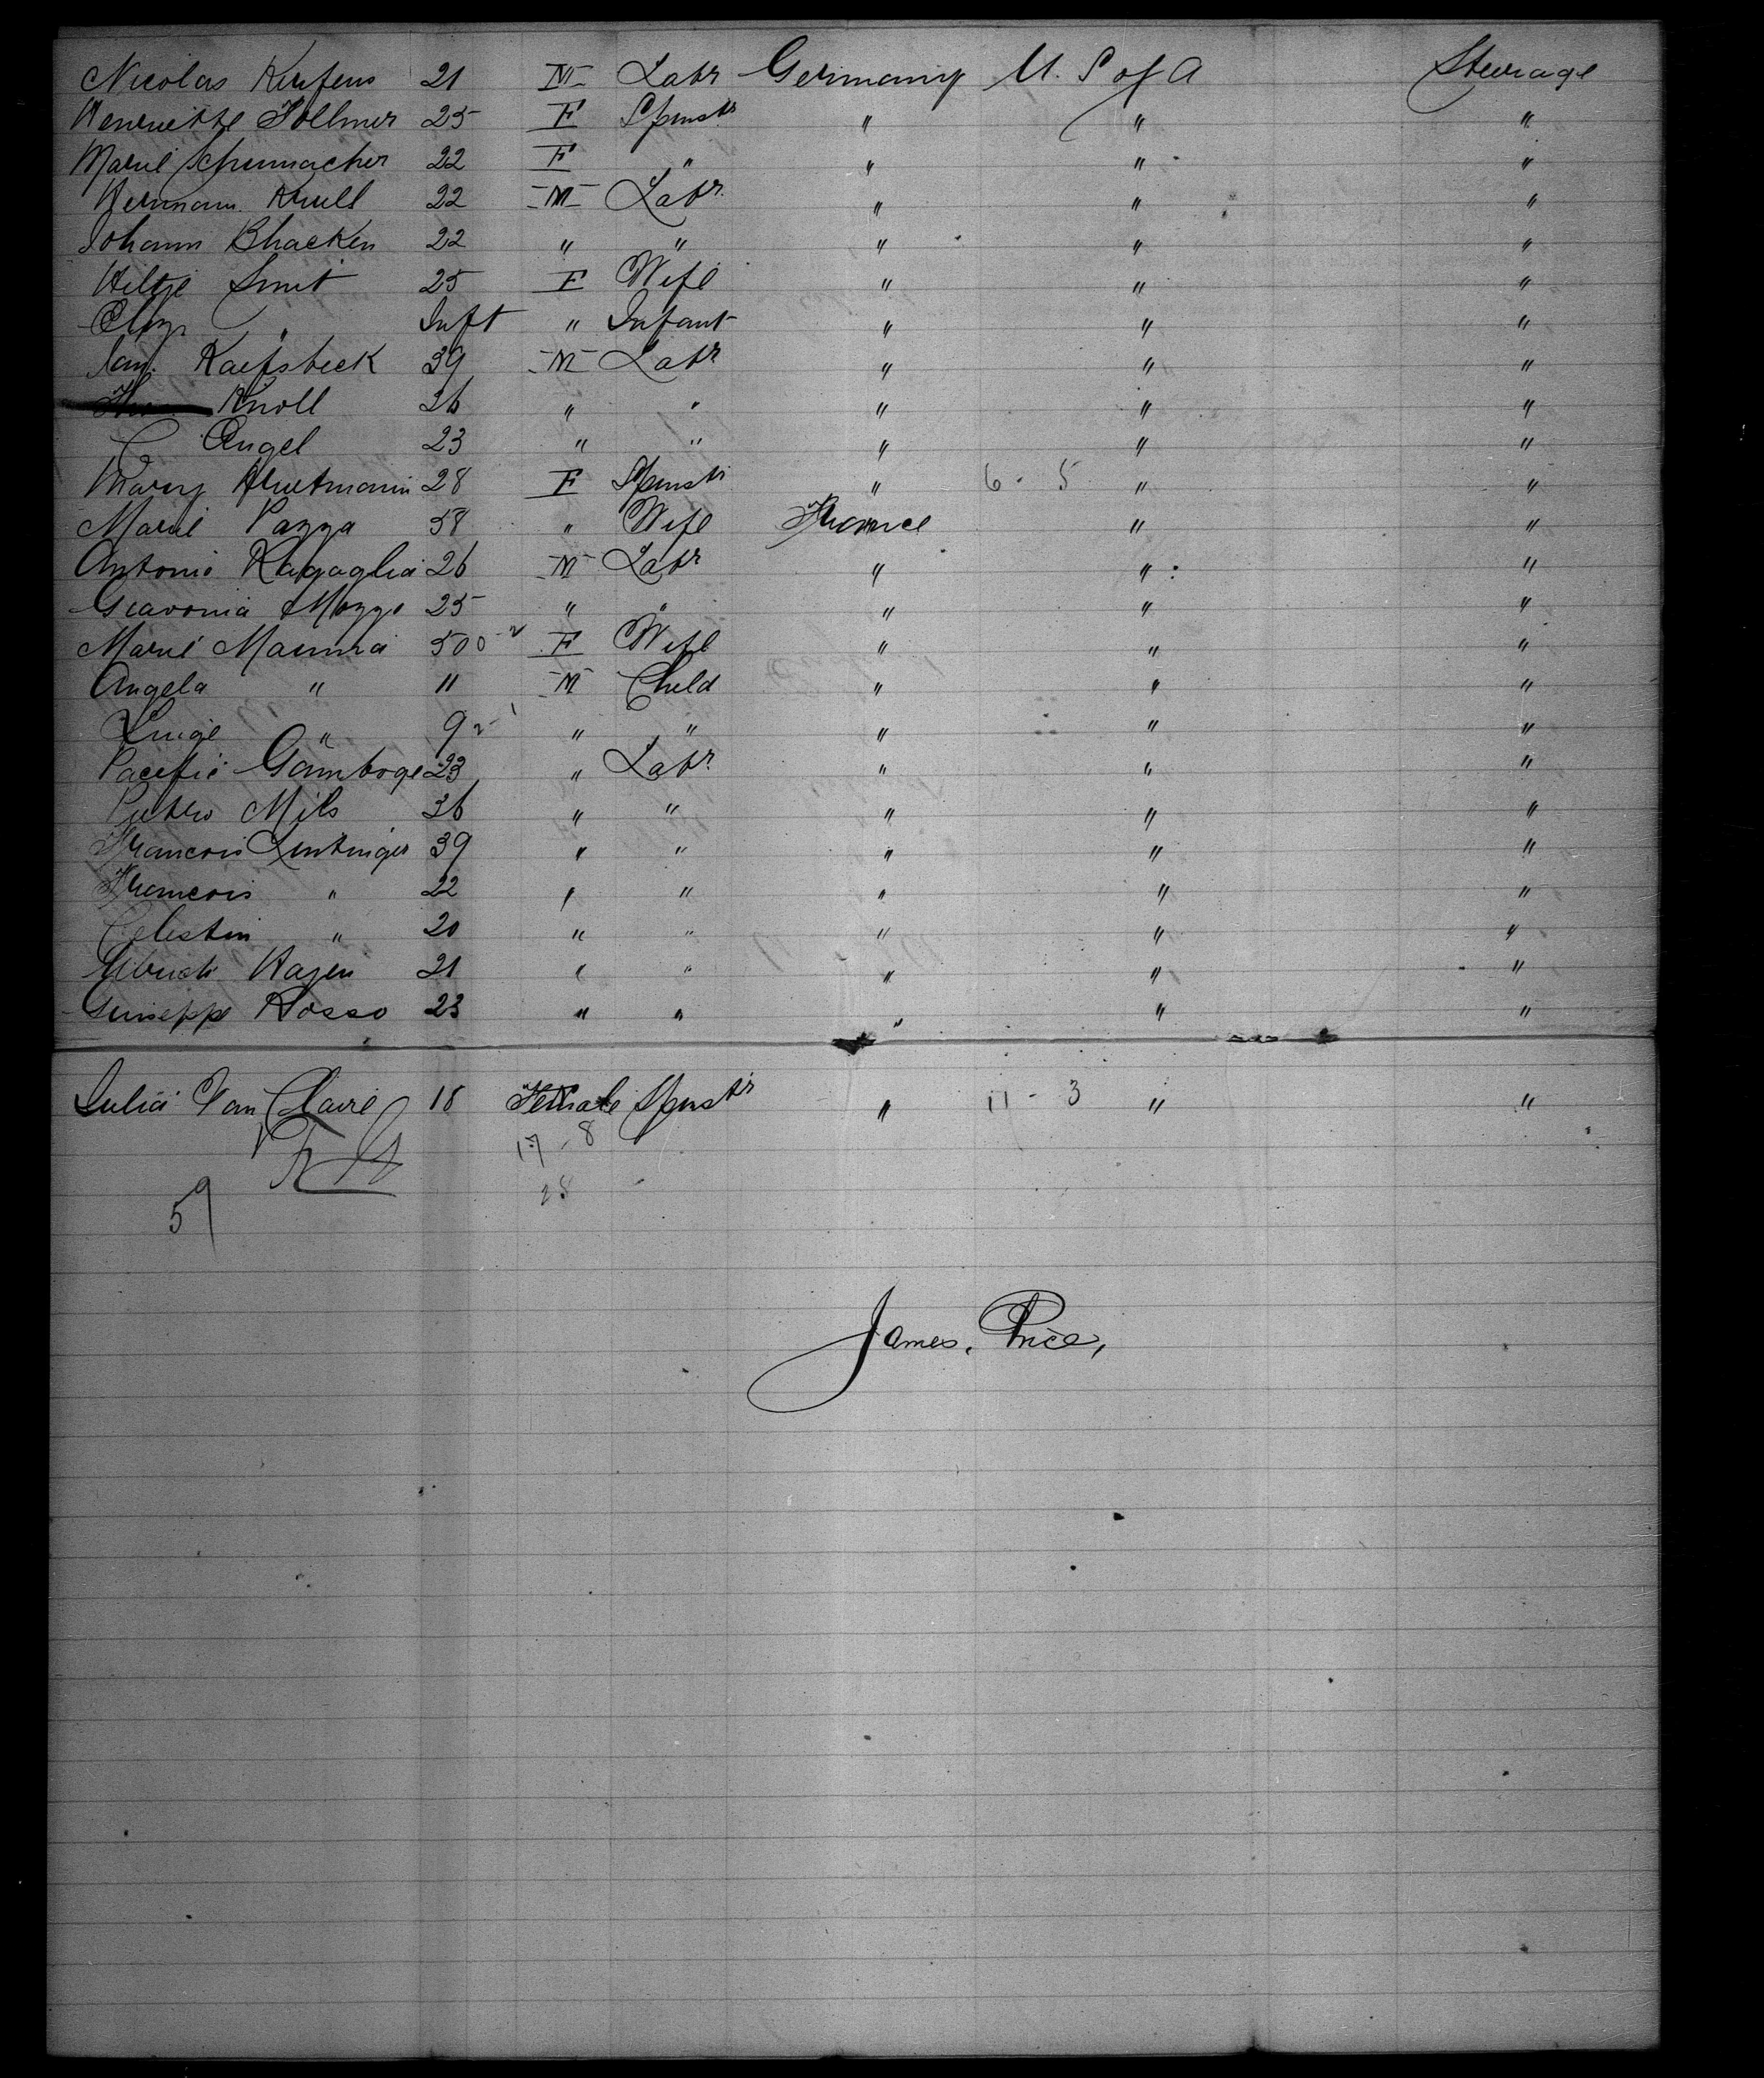 Nicolas Kerfens 21 M Labr Germany U. S of A Steerage
Henriette Follmer 25 F Spinstr " " "
Marie Schumacher 22 F " " " "
Hermann Krull 22 M Labr " " "
Johann Bhacken 22 " " " " "
Hiltje Smit 25 F Wife " " "
" Inft " Infant " " "
Jan. Kaefsbeck 39 M Labr " " "
Knoll 26 " " " " "
C Angel 23 " " " " "
Mary 28 F Spinstr " 6 - 5 " "
Marie Pazza 58 " Wife France " "
Antonio Ragaglia 26 M Labr " " "
Giavonia Mozzo 25 " " " " "
Marie Maunna 50 F Wife " " "
Angela " 11 M Child " " "
Luige " 9 " " " " "
Pacific Gamboge 23 " Labr " " "
Pietro Mils 36 " " " " "
Francois Lintinger 39 " " " " "
Francois " 22 " " " " "
Celestin " 20 " " " " "
Hazen 21 " " " " "
Guiseppe Rosso 23 " " " " "
Julia Van Claire 18 Female Spinstr " 11 - 3 " "
17 - 8
28
59
James. Price,